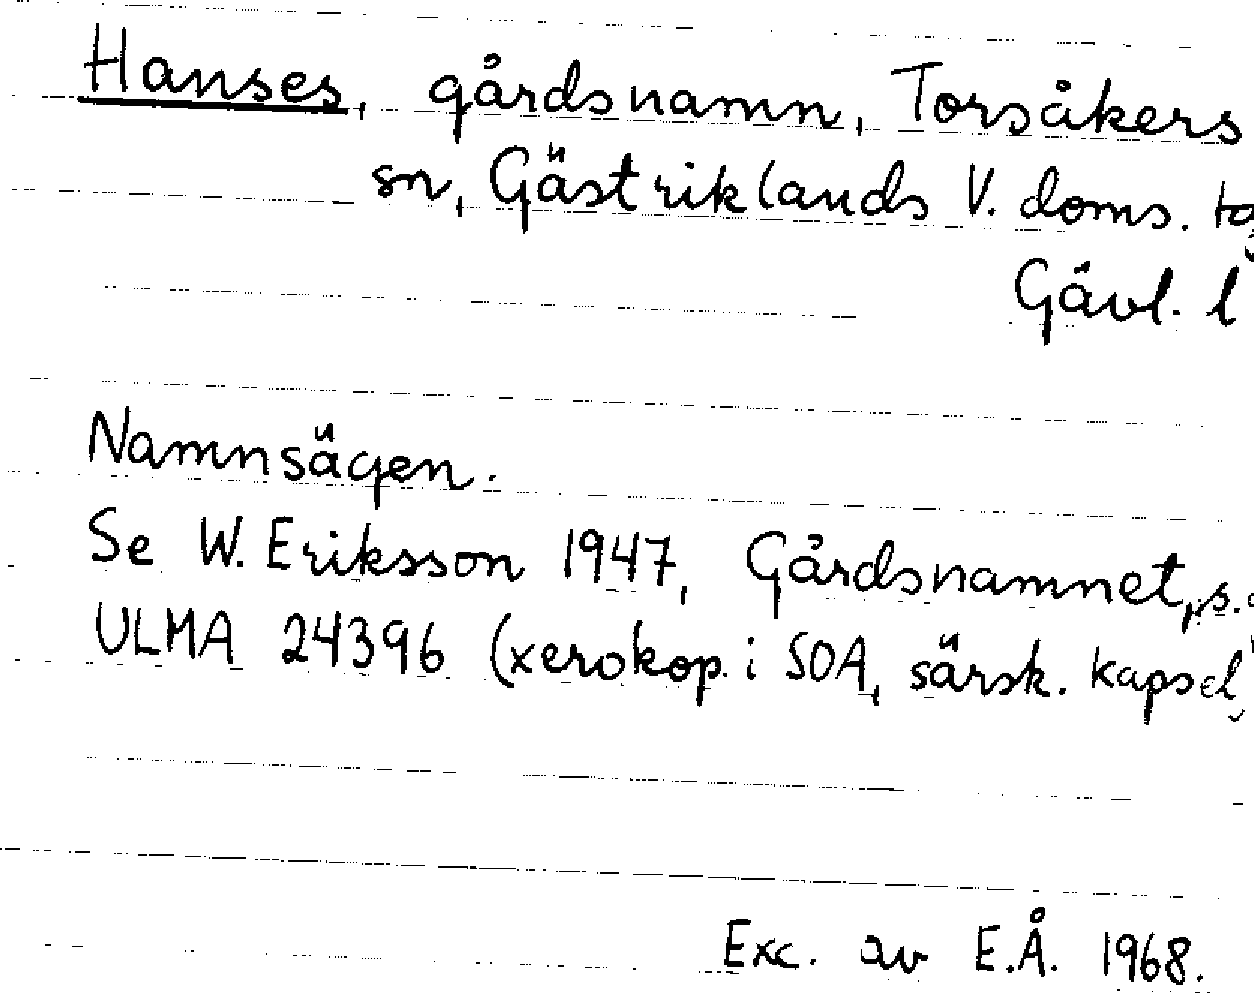 Hanses, gårdsnamn, Torsåkers
sn, Gästriklands V. doms.
Gävl. l
Namnsägen.
Se W. Eriksson 1947, Gårdsnamnet, s.
ULMA 24396 (xerokop. i SOA, särsk. kapsel
Exc. av E.Å. 1968.